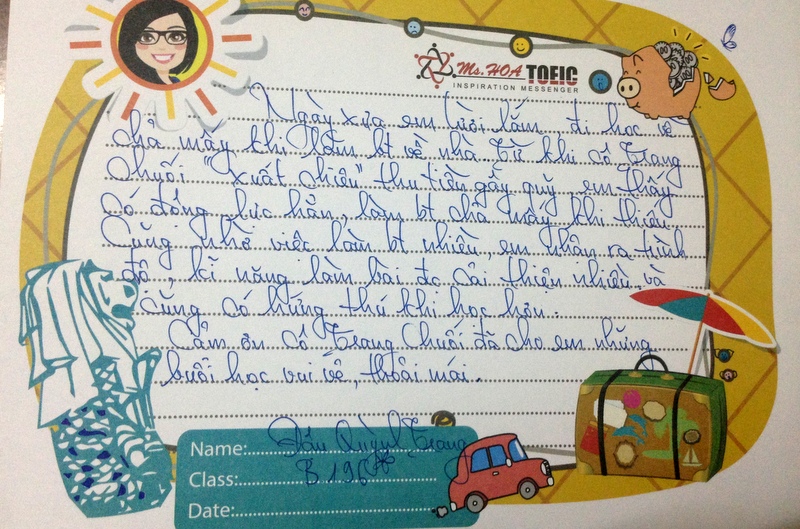 Ms. HOA TOEIC
INSPIRATION MESSENGER
Ngày xưa em lười lắm, đi học về
chả mấy khi làm bt về nhà. Từ khi cô Trang
Chuối "xuất chiêu" thu tiền gây quỹ, em thấy
có động lực hẳn, làm bt chả mấy khi thiếu
Cũng nhờ việc làm bt nhiều, em nhận ra trình
độ, kĩ năng làm bài đc cải thiện nhiều và
cũng có hứng thú khi học hơn.
Cảm ơn cô Trang Chuối đã cho em những
buổi học vui vẻ, thoải mái.
Name: Quỳnh Trang
Class: B190
Date: